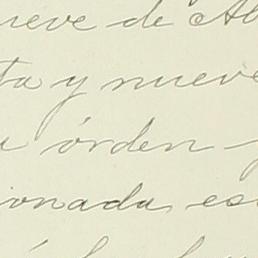 ueve de Ab
ta y nueve
órden
ionada, es